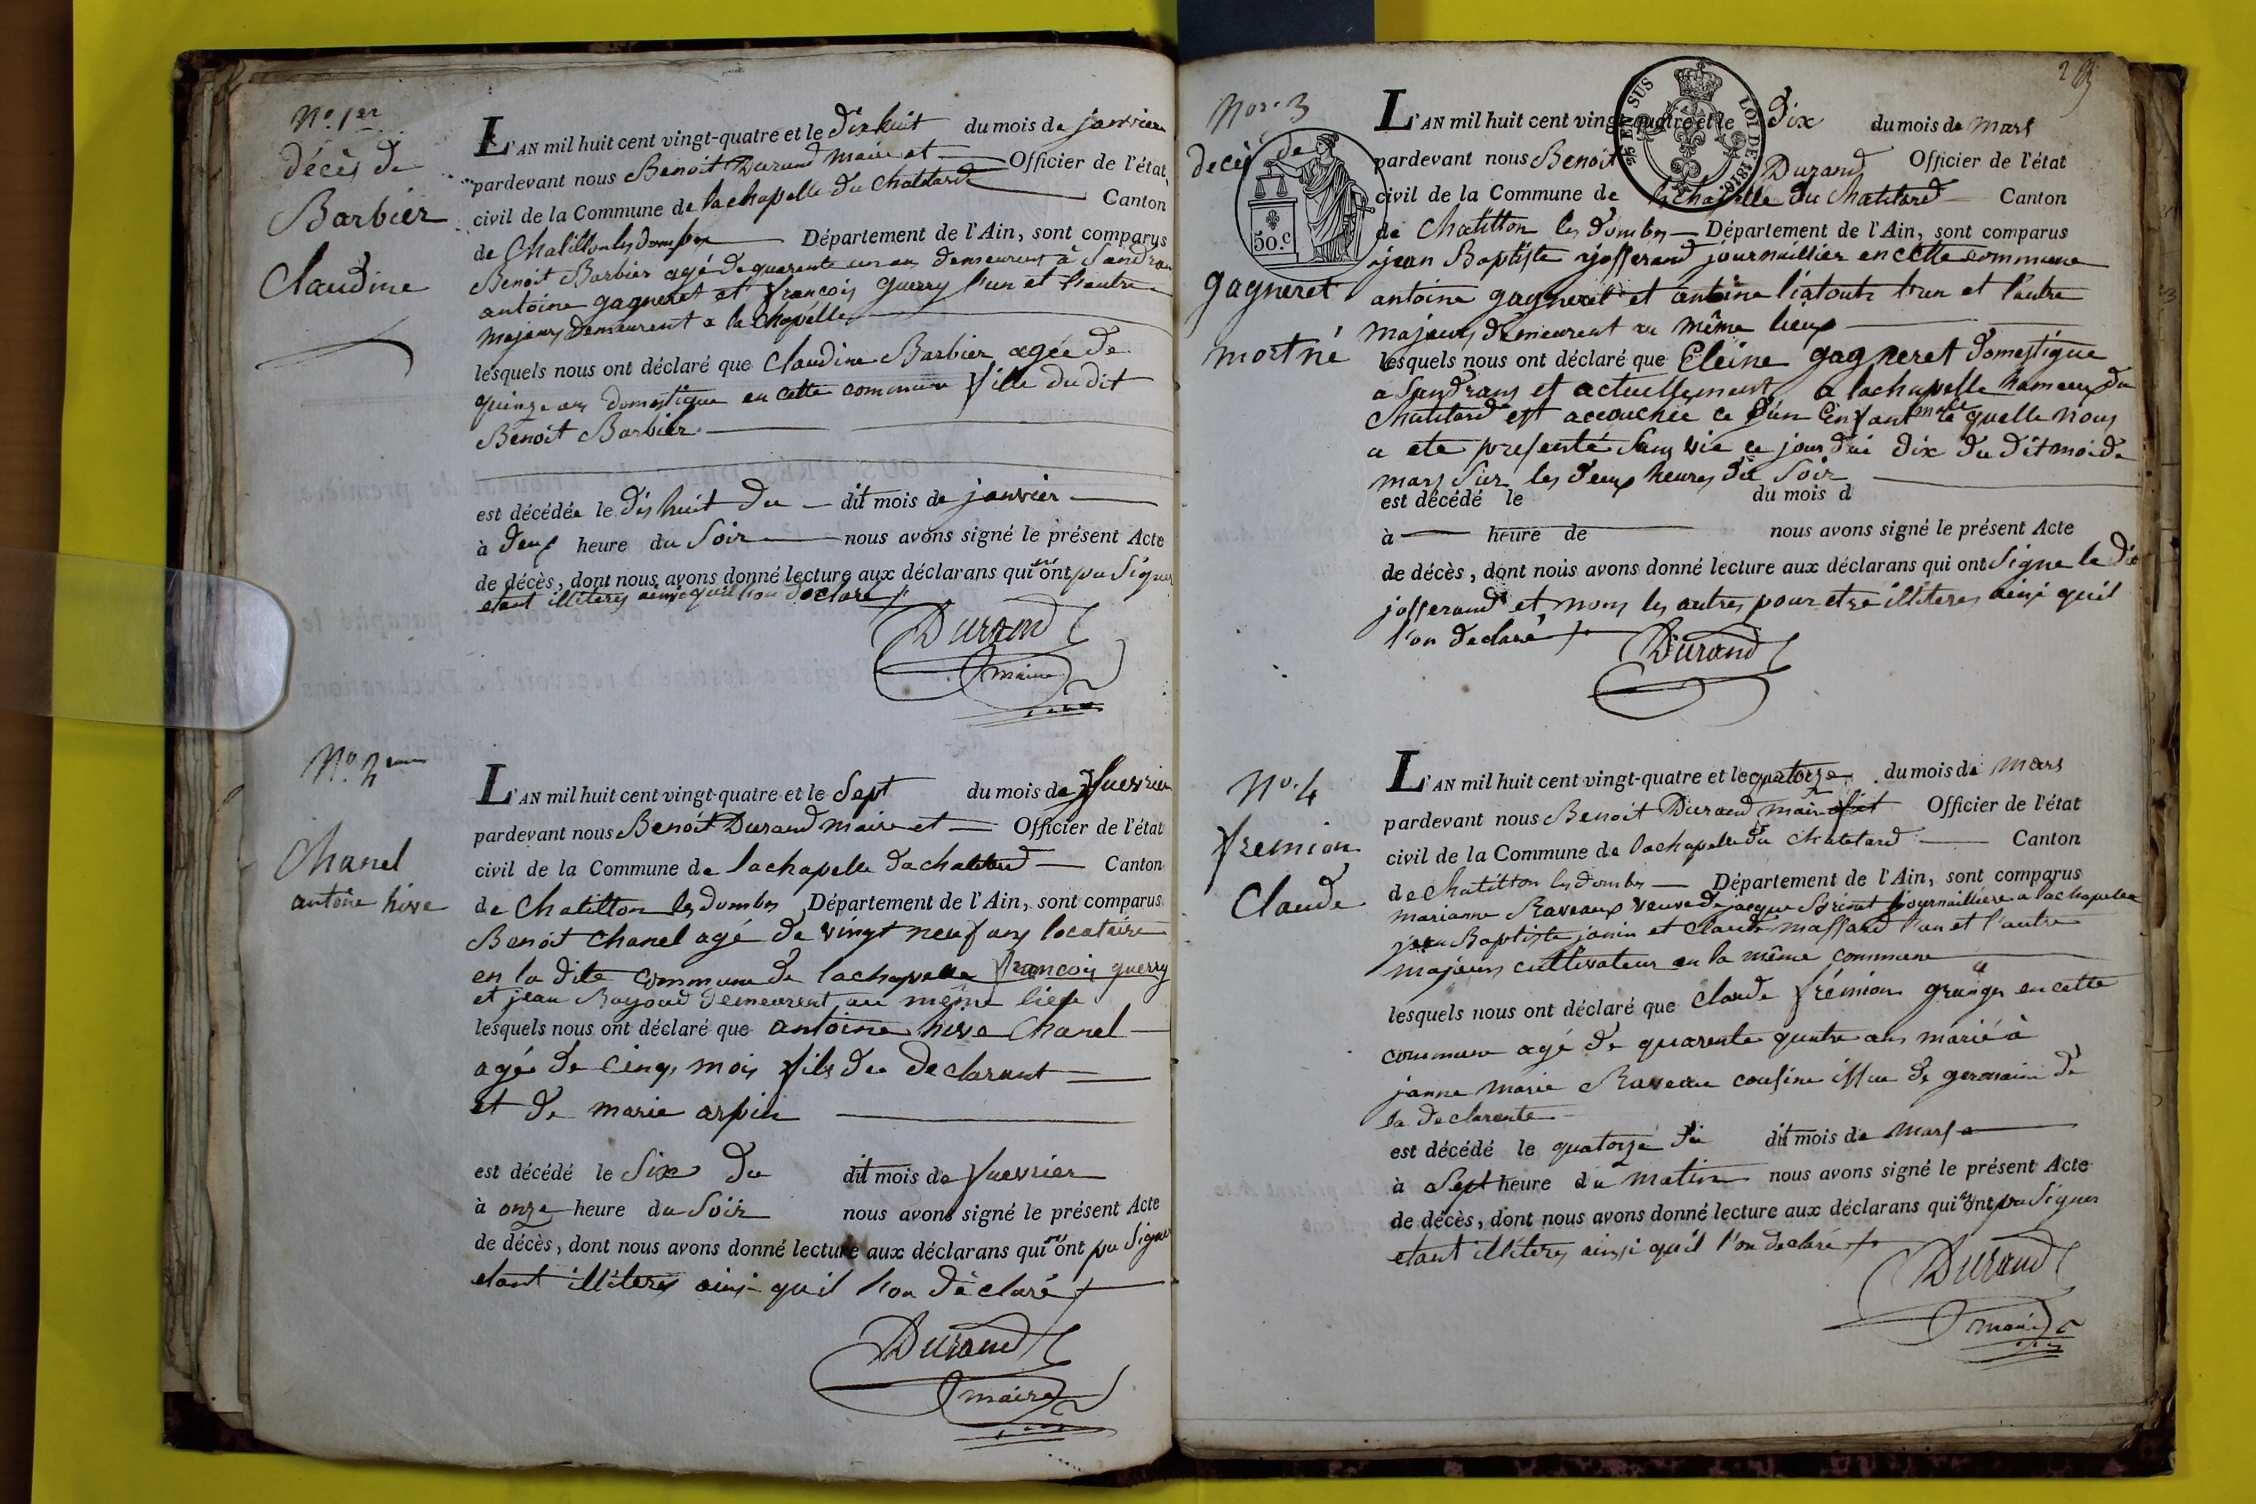 No. 1er
décès de
Barbier
Claudine
L'AN mil huit cent vingt-quatre et le dix huit du mois de janvier
pardevant nous Benoit Durand maire et Officier de l'état
civil de la Commune de lachapelle du Chatelard Canton
de Chatillon les dombes Département de l'Ain, sont comparus
Benoit Barbier agé de quarente un ans demeurent à Sandran
antoine gagneret et francois guerry l'un et l'autre
majeurs demeurent a la Chapelle
lesquels nous ont déclaré que Claudine Barbier agée de
quinze ans domestique en cette commune fille du dit
Benoit Barbier
est décédée le dix huit du dit mois de janvier
à deux heure du Soir nous avons signé le présent Acte
de décès, dont nous avons donné lecture aux déclarans qui n'ont pu Signer
etant illiteres ainsi quil l'on declaré
Durand
maire
No. 2eme
Chanel
antoine hive
L'AN mil huit cent vingt-quatre et le Sept du mois de fuevrier
pardevant nous Benoit Durand maire et Officier de l'état
civil de la Commune de lachapelle du chatelard Canton
de Chatillon les dombes Département de l'Ain, sont comparus
Benoit Chanel agé de vingt neuf ans locataire
en la dite commune de lachapelle francois guerry
et jean Bayoud demeurent au même lieu
lesquels nous ont déclaré que antoine hive Chanel
agé de cinq mois fils du declarant
et de marie arpin
est décédé le Six du dit mois de fuevrier
à onze heure du Soir nous avons signé le présent Acte
de décès, dont nous avons donné lecture aux déclarans qui n'ont pu Signer
etant illiteres ainsi quil l'on déclaré
Durand
maire
No. 3
décès de
gagneret
mort né
25 EN SUS LOI DE 1816.
50.c
L'AN mil huit cent vingt-quatre et le dix du mois de mars
pardevant nous Benoit Durand Officier de l'état
civil de la Commune de lachapelle du Chatelard Canton
de Chatillon les dombes Département de l'Ain, sont comparus
jean Baptiste josserand journaillier en cette commune
antoine gagneret et antoine liatout l'un et l'autre
majeurs demeurent au même lieux
lesquels nous ont déclaré que Eleine gagneret domestique
a Sandrans et actuellement a lachapelle hameau du
Chatelard est accouchée ce d'un Enfant male quelle nous
a ete presenté Sans vie ce jourdui dix du dit moi de
mars Sur les deux heures du Soir
est décédé le du mois d
à heure de nous avons signé le présent Acte
de décès, dont nous avons donné lecture aux déclarans qui ont Signe le dit
josserand et nons les autres pour etre illiteres ainsi quil
l'on declaré
Durand
No. 4
freinion
Claude
L'AN mil huit cent vingt-quatre et le quatorze du mois de mars
pardevant nous Benoit Durand maire Officier de l'état
civil de la Commune de lachapelle du Chatelard Canton
de Chatillon les dombes Département de l'Ain, sont comparus
marianne Raveaux veuve de jacque journailliere a lachapelle
jean Baptiste janin et Claude massard l'un et l'autre
majeurs cultivateur en la même commune
lesquels nous ont déclaré que Claude freinion granger en cette
commune agé de quarente quatre ans marié à
janne marie Raveau cousine issue de germaine de
la declarente
est décédé le quatorze du dit mois de mars
à Sept heure du matin nous avons signé le présent Acte
de décès, dont nous avons donné lecture aux déclarans qui n'ont pu Signer
etant illiteres ainsi quil l'on declaré
Durand
maire